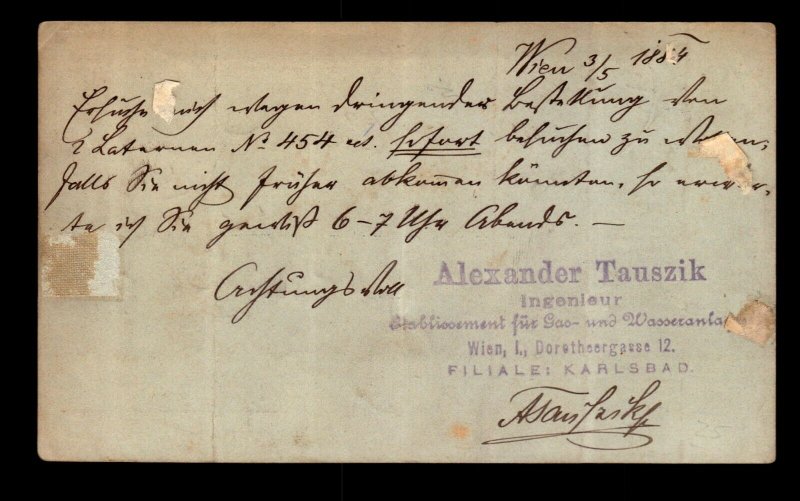 Wien 3/5 1884
Ersuche mich wegen dringender Bestellung von
2 Laternen No 454 ect. sofort besuchen zu wollen,
falls Sie nicht früher abkommen könnten, so erwar-
te ich Sie gewiß 6-7 Uhr Abends. —
Achtungsvoll
Alexander Tauszik
Ingenieur
Etablissement für Gas- und Wasseranla
Wien, I., Dorotheergasse 12.
FILIALE: KARLSBAD.
ATauszik
35